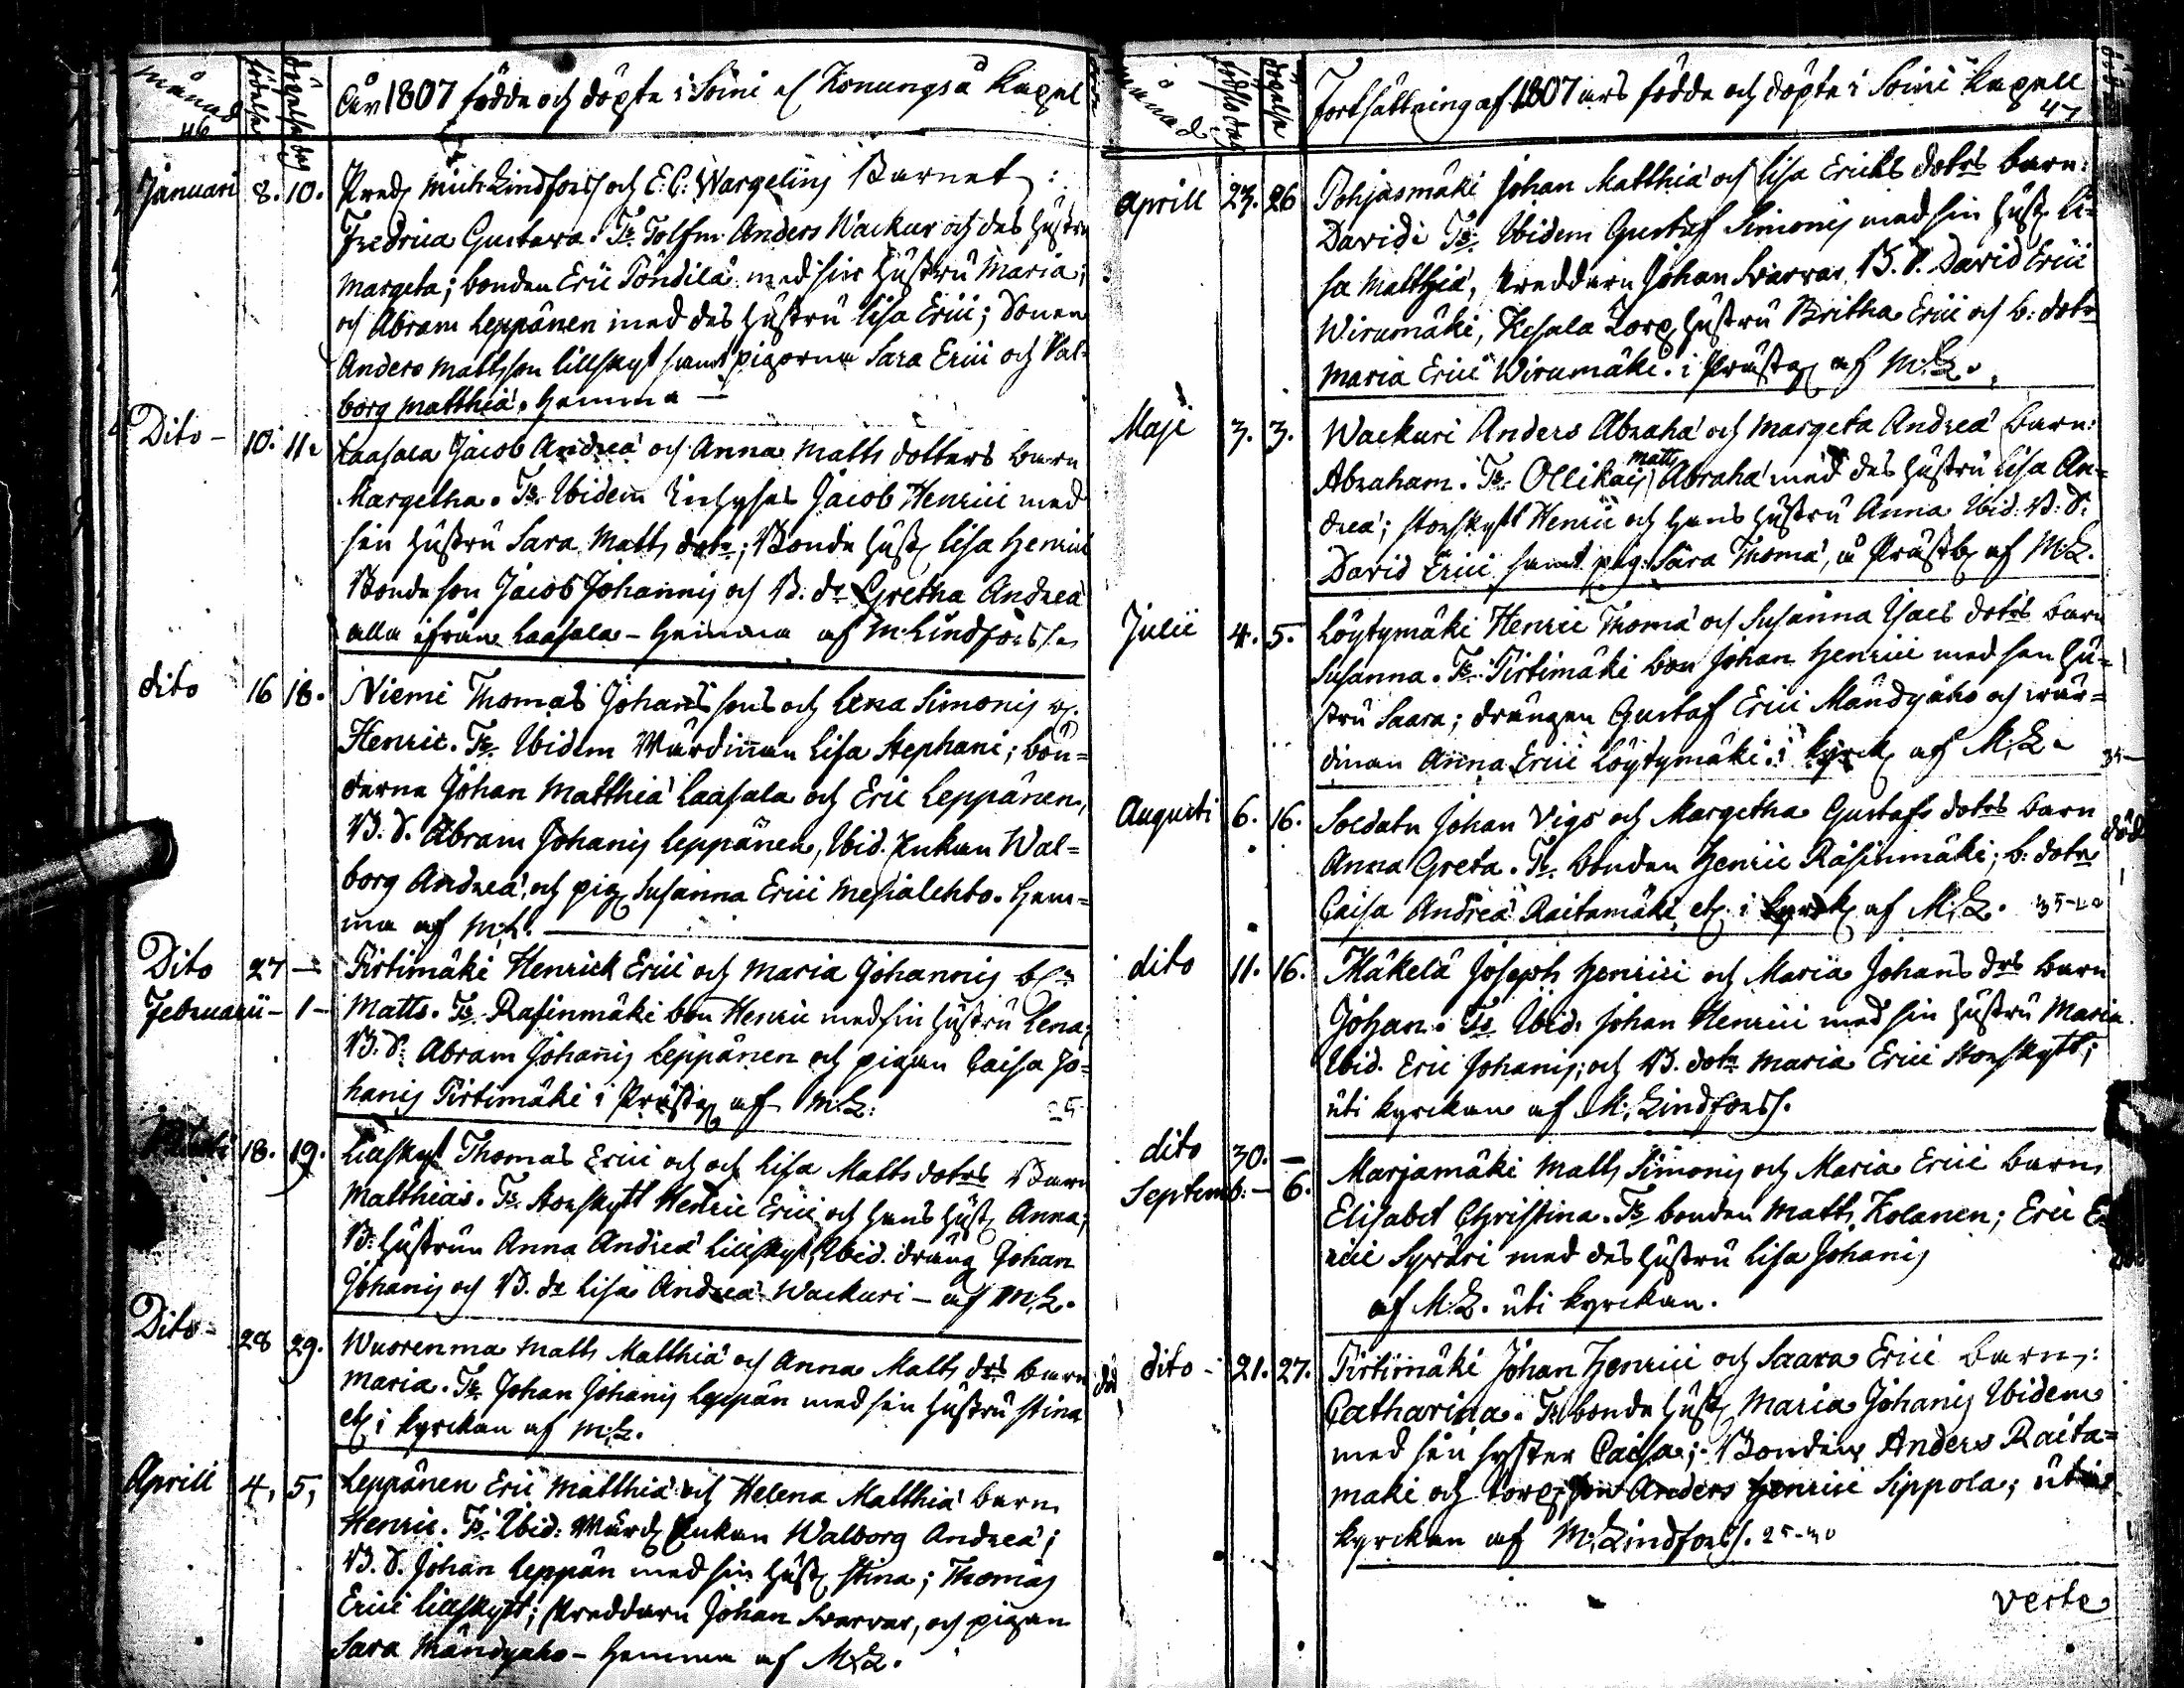 månad födelse döpelse dag
46
Åår 1807 födde och döpte i Soini el Konungså Kapel
Januari 8. 10. Pred Mich Lindforss och E: C: Wargelins Barnet:
Fredrica Gustava. Ts. Tolfm. Anders Wackur och des hustru
Margeta; bonden Eric Pöndilä med sin hustru Maria;
och Abram Leppänen med des hustru Lisa Erici; Sonen
Anders Mattsson Lillskyt samt pigorna Sara Erici och Val-
borg Matthiæ. Hemma
Dito - 10. 11. Laasala Jacob Andreæ och Anna Matts dotters barn
Margetha. Ts. Ibidem Inhyses Jacob Henrici med
sin hustru Sara Matts dotr; Bonde hust Lisa Henrici
Bonde son Jacob Johannis och B. dr Gretha Andreæ
alla ifrån Laasala - Hemma af M: Lindforss.
dito 16 18. Niemi Thomas Johans sons och Lena Simonis
Henric. Ts. Ibidem Värdinnan Lisa Stephani; bön-
derne Johan Matthiæ Laasala och Eric Leppänen,
B. S. Abram Johanis Leppänen, Ibid. Enkan Wal-
borg Andreæ, och pig Susanna Erici Mesialehto. Hem-
ma af M: L.
Dito 27 - Pirtimäki Henrick Erici och Maria Johannis
Februarii - 1 - Matts. Ts. Rasinmäki bon Henric med sin hustru Lena;
B. S. Abram Johanis Leppänen och pigan Caisa Jo-
hanis Pirtimäki i Prästg af M: L: 25
18. 19. Lillskyt Thomas Erici och och Lisa Matts dotrs Barn
Matthias. Ts. Storskytt Henric Erici och hans hust Anna;
B: hustrun Anna Andreæ Lillskyt, Ibid. dräng Johan
Johanis och B. dr Lisa Andreæ Wackuri - af M: L.
Dito - 28 29. Wuorenma Matts Matthiæ och Anna Matts drs barn
Maria. Ts. Johan Johanis Leppän med sin hustru Stina död
etc i kyrckan af M: L.
Aprill 4, 5, Leppänen Eric Matthiæ och Helena Matthiæ barn
Henric. Ts. Ibid: Värd Enkan Walborg Andreæ;
B. S. Johan Leppän med sin hust Stina; Thomas
Erici Lillskytt; Skreddarn Johan Svarvar, och pigan
Sara Mändyaho - Hemma af M: L.
månad födslo dag döpelse
Fortsättning af 1807 års födde och döpte i Soini Kapell
47
Aprill 23. 26 Pohjasmäki Johan Matthiæ och Lisa Ericks dotrs barn:
David: Ts. Ibidem Gustaf Simonis med sin hust Li-
sa Matthiæ, Skreddarn Johan Svarvar, B. S. David Erici
Wirumäki, Kesala Torp hustru Britha Erici och b: dotr
Maria Erici Wirumäki. i Prästg af M: L.
Maji 3. 3. Wackuri Anders Abrahæ och Margeta Andreæ barn:
Abraham. Ts. Ollikais Matts Abrahæ med des hustru Lisa An-
dreæ; Storskytt Henric och hans hustru Anna Ibid: B: S:
David Erici samt pig: Sara Thomæ, å Prästb af M: L.
Julii 4. 5. Löytymäki Henric Thomæ och Susanna Isacs dotrs barn
Susanna. Ts. Pirtimäki bon Johan Henrici med sin hu-
stru Saara; drängen Gustaf Erici Mändyaho och wär-
dinan Anna Erici Löytymäki. i kyrck af M: L.
Augusti 6. 16. Soldatn Johan Vigs och Margetha Gustafs dotrs barn död
Anna Greta. Ts. bonden Henric Räsinmäki; b: dotr
Caisa Andreæ Raitamäki, etc i kyrck af M: L. 35-40
dito 11. 16. Mäkelä Joseph Henrici och Maria Johans drs barn
Johan. Ts. Ibid: Johan Henrici med sin hustru Maria.
Ibid. Eric Johanis; och B. dotr Maria Erici Storskytt;
uti kyrckan af M: Lindforss.
dito 30. - Marjamäki Matts Simonis och Maria Erici barn
Septemb: - 6. Elisabet Christina. Ts. bonden Matts Kolanen; Eric E
rici Syväri med des hustru Lisa Johanis
af M: L. uti kyrckan.
dito - 21. 27. Pirtimäki Johan Henrici och Saara Erici barn:
Catharina. Ts. bonde hust Maria Johanis Ibidem
med sin syster Caisa; Bonden Anders Raita-
mäki och torp son Anders Henrici Sippola; uti
kyrckan af M: Lindforss. 25-30
verte